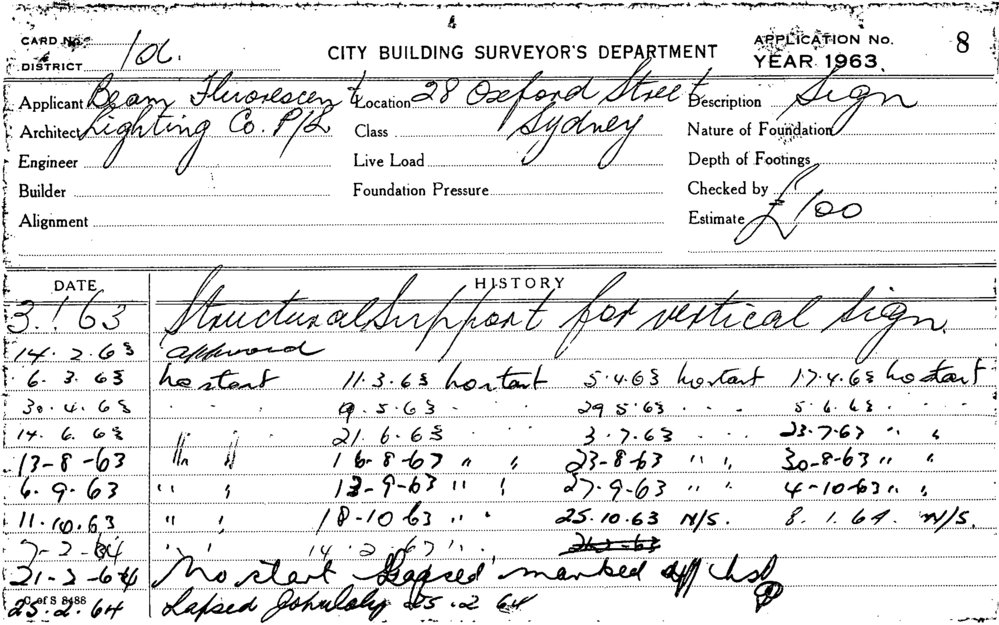 CARD No. 10. CITY BUILDING SURVEYOR'S DEPARTMENT APPLICATION No. 8
DISTRICT YEAR 1963.
Applicant Beam Fluorescent Location 28 Oxford Street Description Sign
Architect Lighting Co. P/L Class Sydney Nature of Foundation
Engineer Live Load Depth of Footings
Builder Foundation Pressure Checked by
Alignment Estimate £100
DATE HISTORY
3.1.63 Structural Support for vertical sign.
14.2.63 approved
6.3.63 No start 11.3.63 No start 5.4.63 No start 17.4.63 No start
30.4.63 " " 9.5.63 " " 29 5.63 " " 5.6.63 "
14.6.63 " " 21.6.63 " " 3.7.63 " " 23.7.63 " "
13-8-63 " " 16-8-63 " " 23-8-63 " " 30-8-63 " "
6.9.63 " " 13-9-63 " " 27.9.63 " " 4-10-63 " "
11.10.63 " " 18-10 63 " " 25.10.63 N/S. 8.1.64. N/S.
7-2-64 " " 14.2.63 " "
21-2-64 No start Lapsed marked off list
C of S 8488
25.2.64 Lapsed 25.2 64